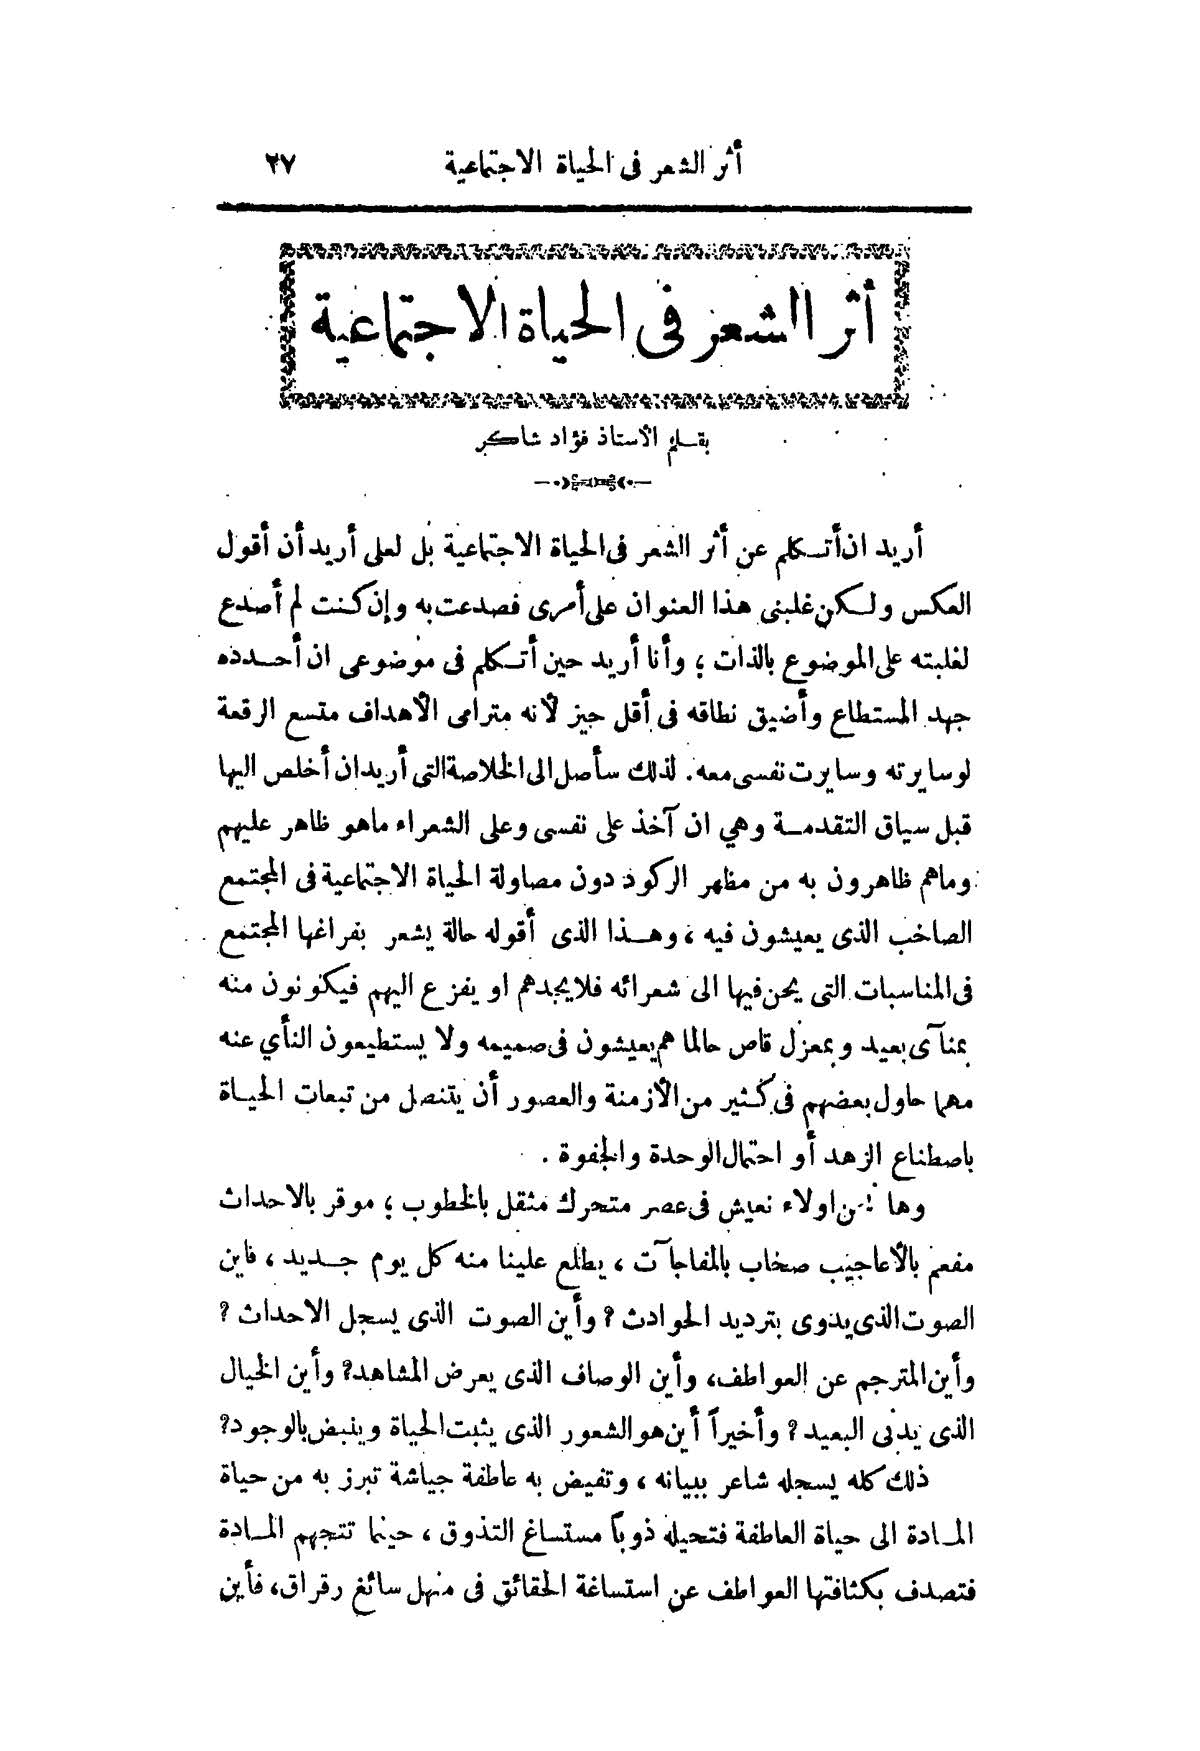 أثر الشعر فى الحياة الاجتماعية ٢٧
أثر الشعر فى الحياة الاجتماعية
بقلم الأستاذ فؤاد شاكر
أريد ان أتكلم عن أثر الشعر فى الحياة الاجتماعية بل لعلى أريد أن أقول
العكس ولكن غلبنى هذا العنوان على أمرى فصدعت به وإن كنت لم أصدع
لغلبته على الموضوع بالذات ؛ وأنا أريد حين أتكلم فى موضوعى ان أحدده
جهد المستطاع وأضيق نطاقه فى أقل حيز لأنه مترامى الأهداف متسع الرقعة
لوسايرته وسايرت نفسى معه. لذلك سأصل الى الخلاصة التى أريد ان أخلص اليها
قبل سياق التقدمة وهي ان آخذ على نفسى وعلى الشعراء ماهو ظاهر عليهم
وماهم ظاهرون به من مظهر الركود دون مصاولة الحياة الاجتماعية فى المجتمع
الصاخب الذى يعيشون فيه ، وهذا الذى أقوله حالة يشعر بفراغها المجتمع
فى المناسبات التى يحن فيها الى شعرائه فلا يجدهم او يفزع اليهم فيكونون منه
بمنآى بعيد وبمعزل قاص حالما هم يعيشون فى صميمه ولا يستطيعون النأي عنه
مهما حاول بعضهم فى كثير من الأزمنة والعصور أن يتنصل من تبعات الحياة
باصطناع الزهد أو احتمال الوحدة والجفوة .
وها نحن اولاء نعيش فى عصر متحرك مثقل بالخطوب ؛ موقر بالاحداث
مفعم بالأعاجيب صخاب بالمفاجآت ، يطلع علينا منه كل يوم جديد ، فاين
الصوت الذى يدوى بترديد الحوادث ؟ وأين الصوت الذى يسجل الاحداث ؟
وأين المترجم عن العواطف، وأين الوصاف الذى يعرض المشاهد؟ وأين الخيال
الذى يدنى البعيد ؟ وأخيراً أين هو الشعور الذى يثبت الحياة وينبض بالوجود؟
ذلك كله يسجله شاعر ببيانه ، وتفيض به عاطفة جياشة تبرز به من حياة
المادة الى حياة العاطفة فتحيله ذوباً مستساغ التذوق ، حينما تتجهم المادة
فتصدف بكثافتها العواطف عن استساغة الحقائق فى منهل سائغ رقراق، فأين